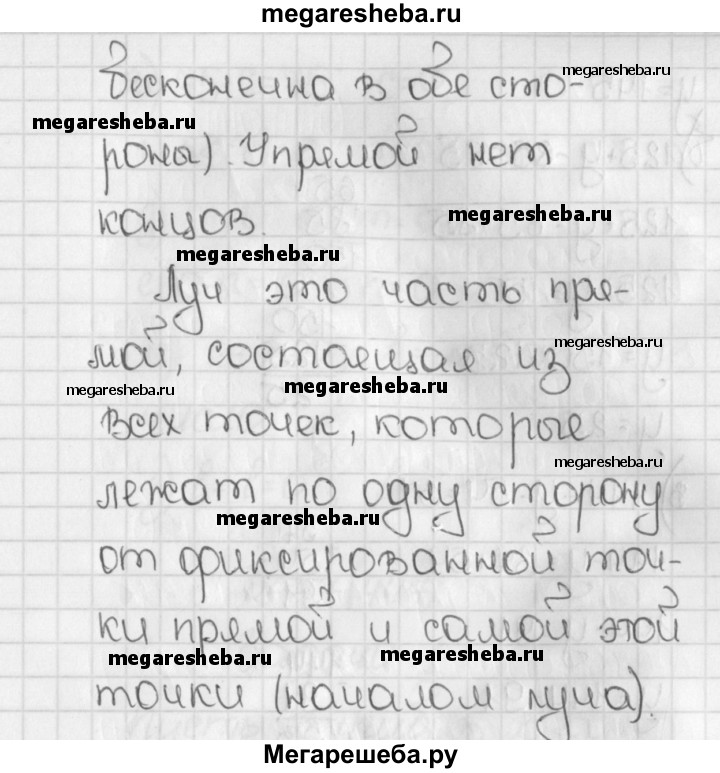 megaresheba.ru
бесконечна в обе сто-
megaresheba.ru
megaresheba.ru
роны). У прямой нет
концов.
megaresheba.ru
megaresheba.ru
Луч это часть пря-
мой, состоящая из
megaresheba.ru
megaresheba.ru
megaresheba.ru
всех точек, которые
megaresheba.ru
лежат по одну сторону
megaresheba.ru
от фиксированной точ-
ки прямой и самой этой
megaresheba.ru
megaresheba.ru
точки (началом луча).
Мегарешеба.ру